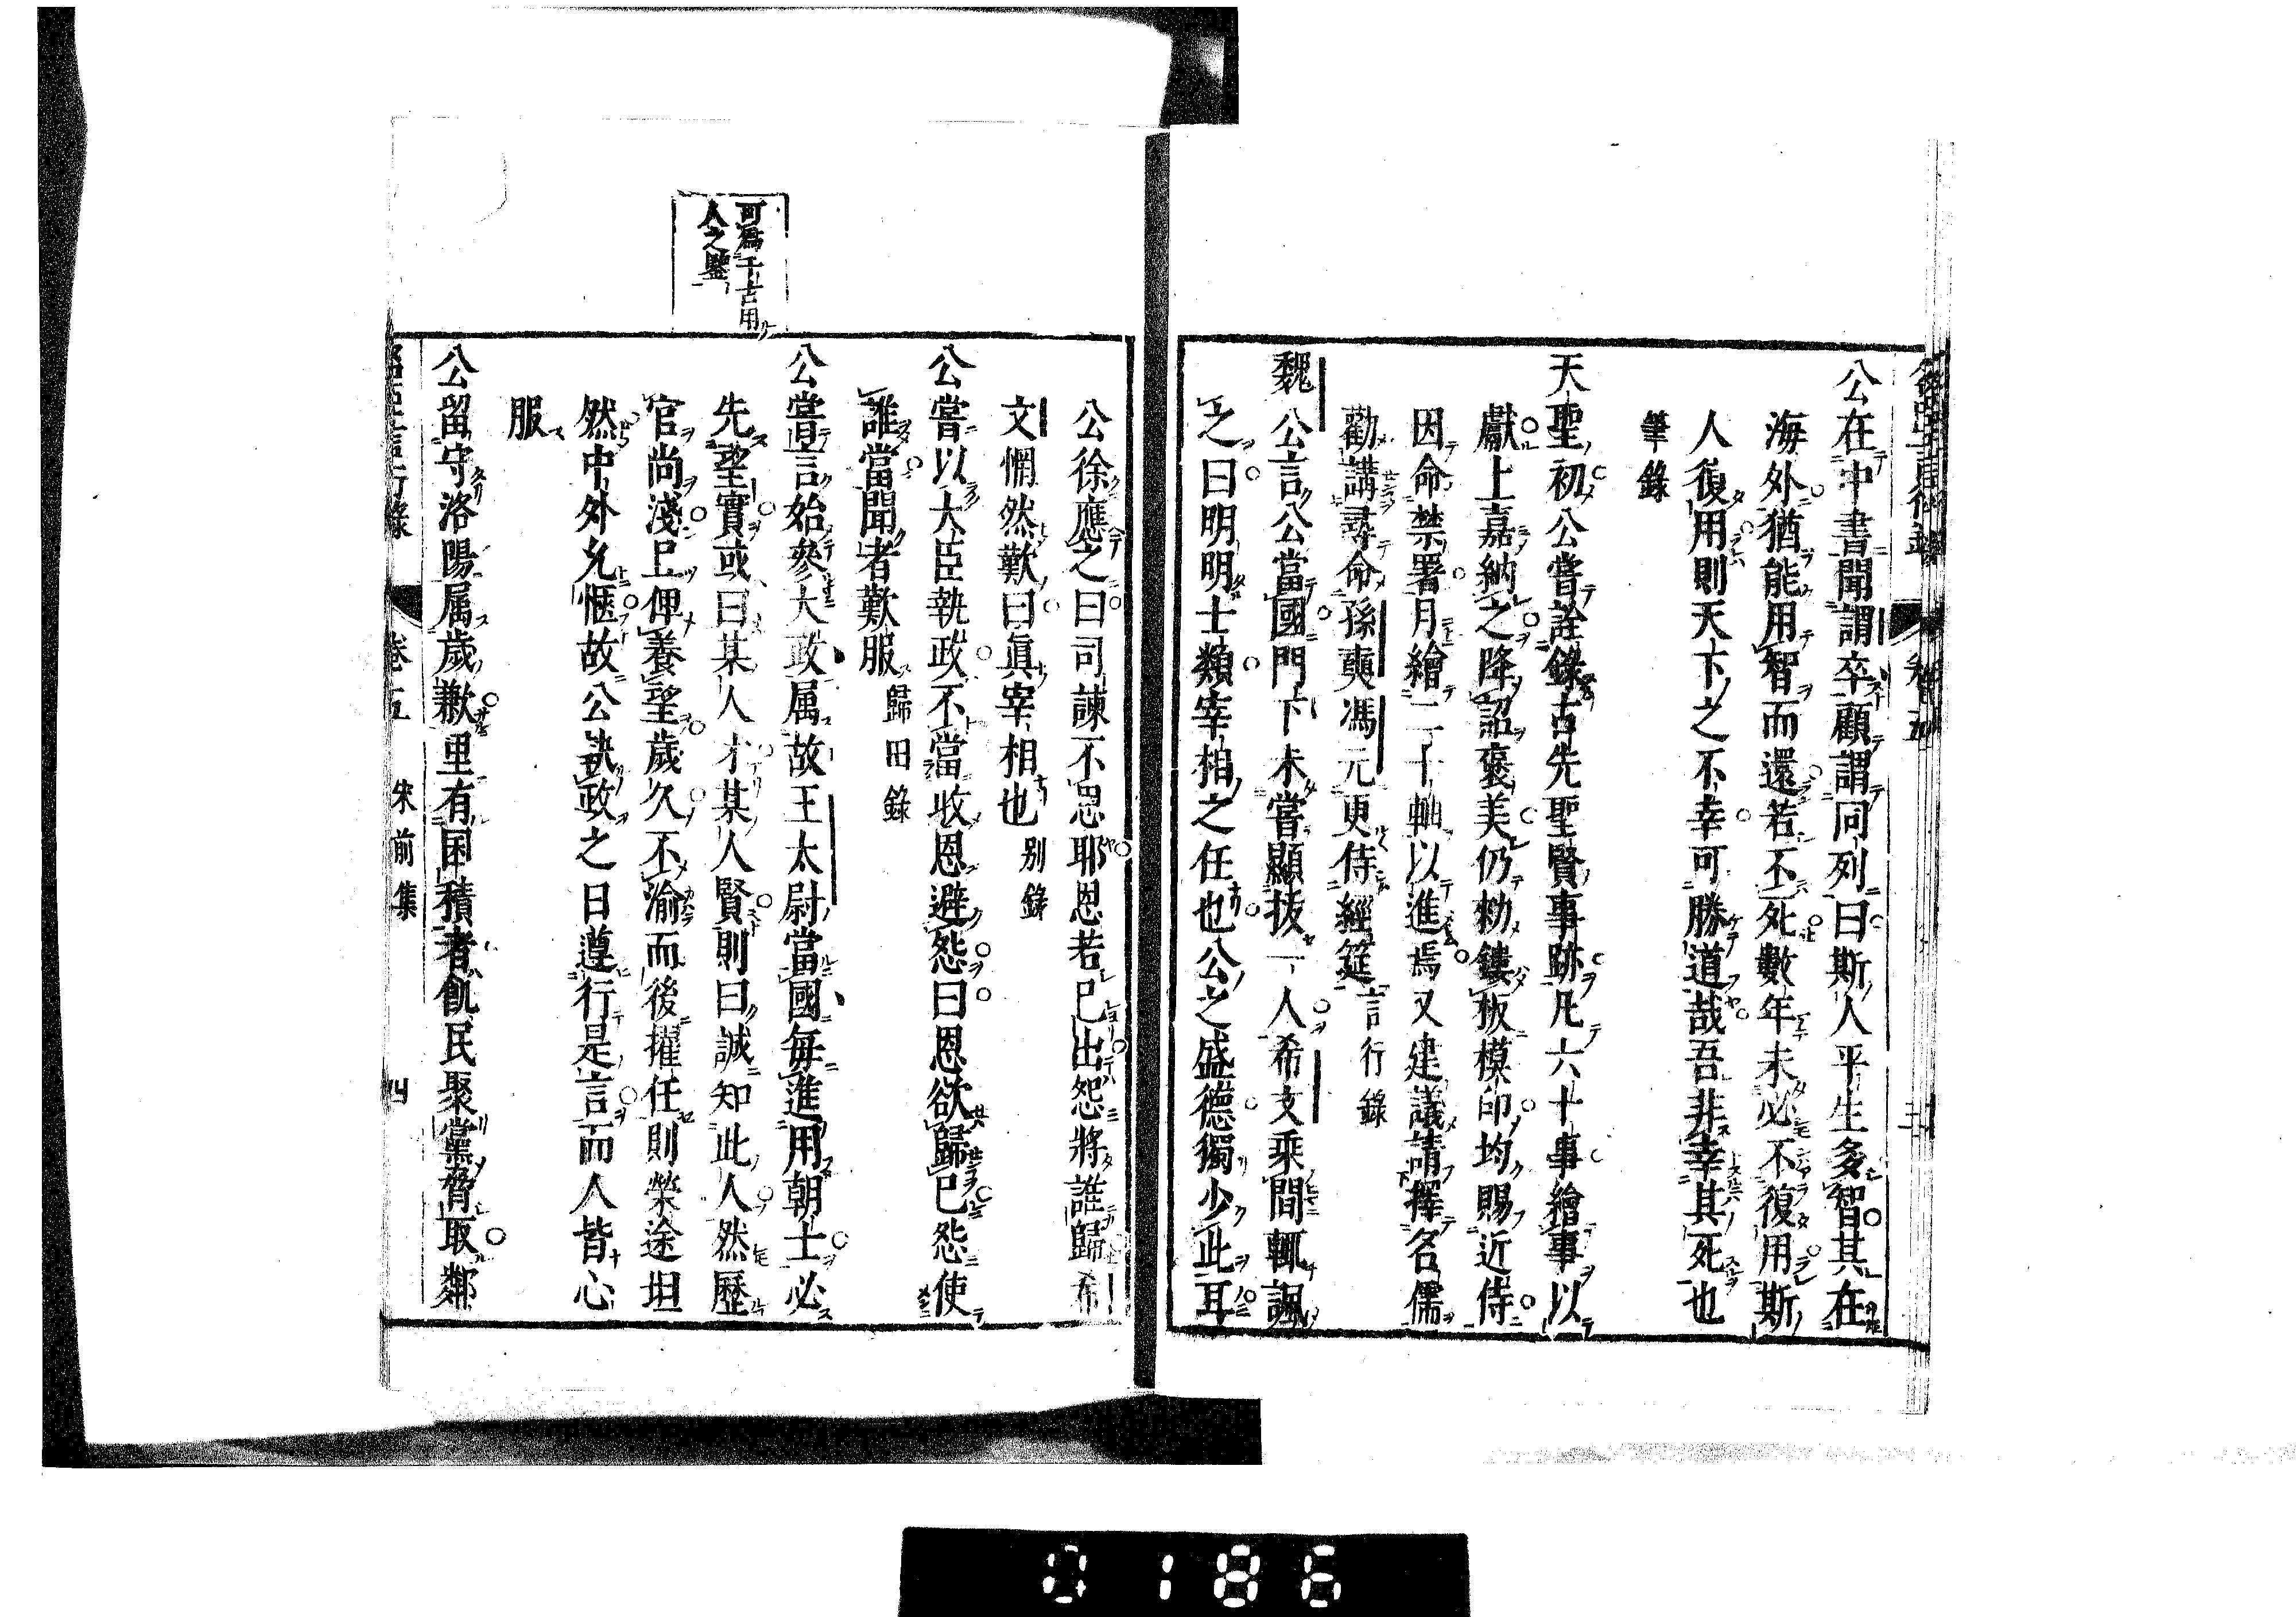 公在中書聞謂卒顧謂同列曰斯人平生多智其在
海外猶能用智而還若不死數年未必不復用斯
人復用則天下之不幸可勝道哉吾非幸其死也
筆錄
天聖初公嘗詮錄古先聖賢事跡凡六十事繪事以
獻上嘉納之降詔褒美仍勑鏤板模印均賜近侍
因命禁署月繪二十軸以進焉又建議請擇名儒
勸講尋命孫奭馮元更侍經筵言行錄
魏公言公當國門下未嘗顯拔一人希文乘間輒諷
之曰明明士類宰相之任也公之盛德獨少此耳
公徐應之曰司諫不思耶恩若已出怨將誰歸希
文惘然歎曰眞宰相也别錄
公嘗以大臣執政不當收恩避怨曰恩欲歸已怨使
誰當聞者歎服歸田錄
可爲千古用
人之鑒
公嘗言始參大政属故王太尉當國每進用朝士必
先望實或曰某人才某人賢則曰誠知此人然歷
官尚淺且俾養望歲久不渝而後擢任則榮途坦
然中外允愜故公執政之日遵行是言而人皆心
服
公留守洛陽属歲歉里有囷積者飢民聚黨脅取鄰
卷五 宋前集 四
0186